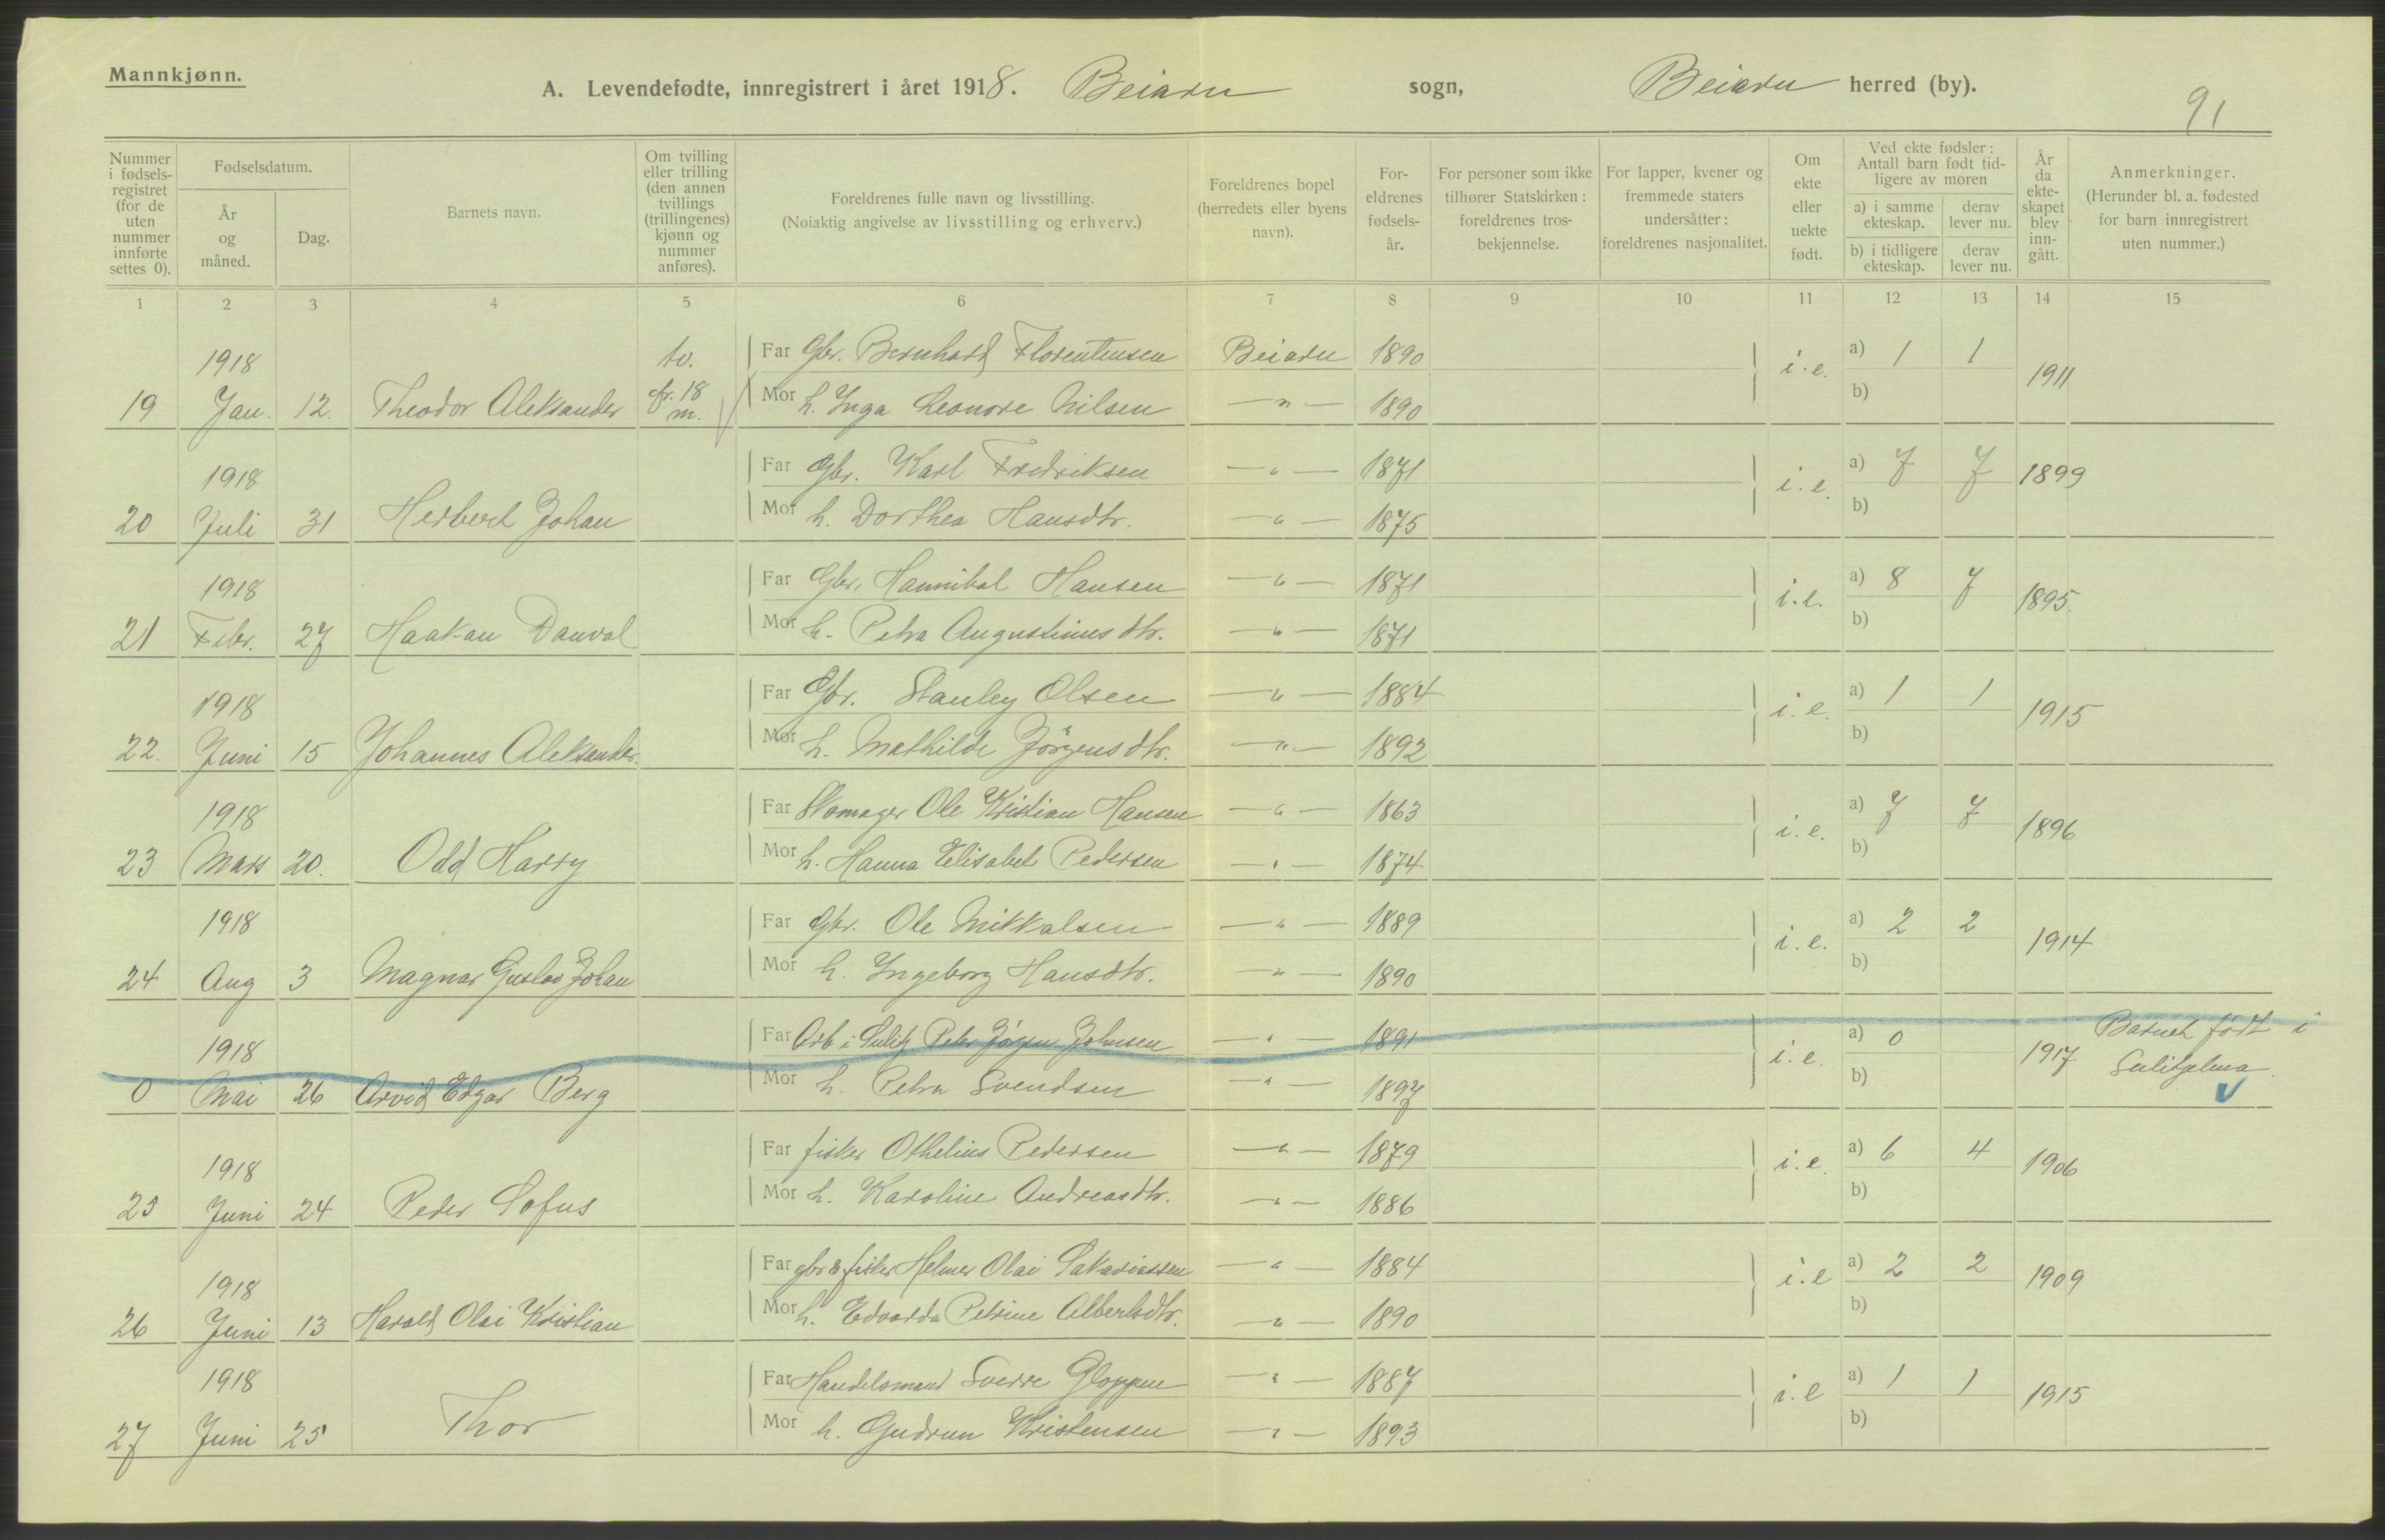 Mannkjønn.
A. Levendefødte, innregistrert i året 1918. Beiarn sogn, Beiarn herred (by).
91
Nummer i fødselsregistret (for de uten nummer innførte settes 0).
Fødselsdatum.
År og måned.
Dag.
Barnets navn.
Om tvilling eller trilling (den annen tvillings (trillingenes) kjønn og nummer anføres).
Foreldrenes fulle navn og livsstilling. (Nøiaktig angivelse av livsstilling og erhverv.)
Foreldrenes bopel (herredets eller byens navn).
Foreldrenes fødselsår.
For personer som ikke tilhører Statskirken: foreldrenes trosbekjennelse.
For lapper, kvener og fremmede staters undersåtter: foreldrenes nasjonalitet.
Om ekte eller uekte født.
Ved ekte fødsler: Antall barn født tidligere av moren
a) i samme ekteskap. derav lever nu.
b) i tidligere ekteskap. derav lever nu.
År da ekteskapet blev inngått.
Anmerkninger. (Herunder bl. a. fødested for barn innregistrert uten nummer.)
1 2 3 4 5 6 7 8 9 10 11 12 13 14 15
1918 tv. Far Gbr. Bernhard Florentensen Beiarn 1890 i.e. a) 1 1 1911
19 Jan. 12. Theodor Aleksander cfr. 18 m. Mor h. Inga Leonore Nilsen — " — 1890 b)
1918 Far Gbr. Karl Fredriksen — " — 1871 i.e. a) 7 7 1899
20 Juli 31 Herbert Johan Mor h. Dorthea Hansdtr. — " — 1875 b)
1918 Far Gbr. Hannibal Hansen — " — 1871 i.e. a) 8 7 1895.
21 Febr. 27 Haakan Danval Mor h. Petra Augustinusdtr. — " — 1871 b)
1918 Far Gbr. Stanley Olsen — " — 1884 i.e. a) 1 1 1915
22. Juni 15 Johannes Aleksander. Mor h. Mathilde Jörgensdtr. — " — 1892 b)
1918 Far Skomager Ole Kristian Hansen — " — 1863 i.e. a) 7 7 1896
23 Mars 20. Odd Harry Mor h. Hanna Elisabet Pedersen — " — 1874 b)
1918 Far Gbr. Ole Mikkalsen — " — 1889 i.e. a) 2 2 1914
24 Aug 3 Magnar Gustav Johan Mor h. Ingeborg Hansdtr. — " — 1890 b)
1918 Far Arb i Sulitj Peter Jörgen Johnsen — " — 1891 i.e. a) 0 1917 Barnet født i Sulitjelma.
0 Mai 26 Arvid Edgar Berg Mor h. Petra Svendsen — " — 1897 b)
1918 Far fisker Othelius Pedersen — " — 1879 i.e. a) 6 4 1906
25 Juni 24 Peder Sofus Mor h. Karoline Andreasdtr. — " — 1886 b)
1918 Far gbr & fisker Helmer Olai Sakariassen — " — 1884 i.e a) 2 2 1909
26 Juni 13 Harald Olai Kristian Mor h. Edvarda Petrine Albertsdtr. — " — 1890 b)
1918 Far Handelsmand Sverre Gloppen — " — 1887 i.e a) 1 1 1915
27 Juni 25 Thor Mor h. Gudrun Kristensen — " — 1893 b)